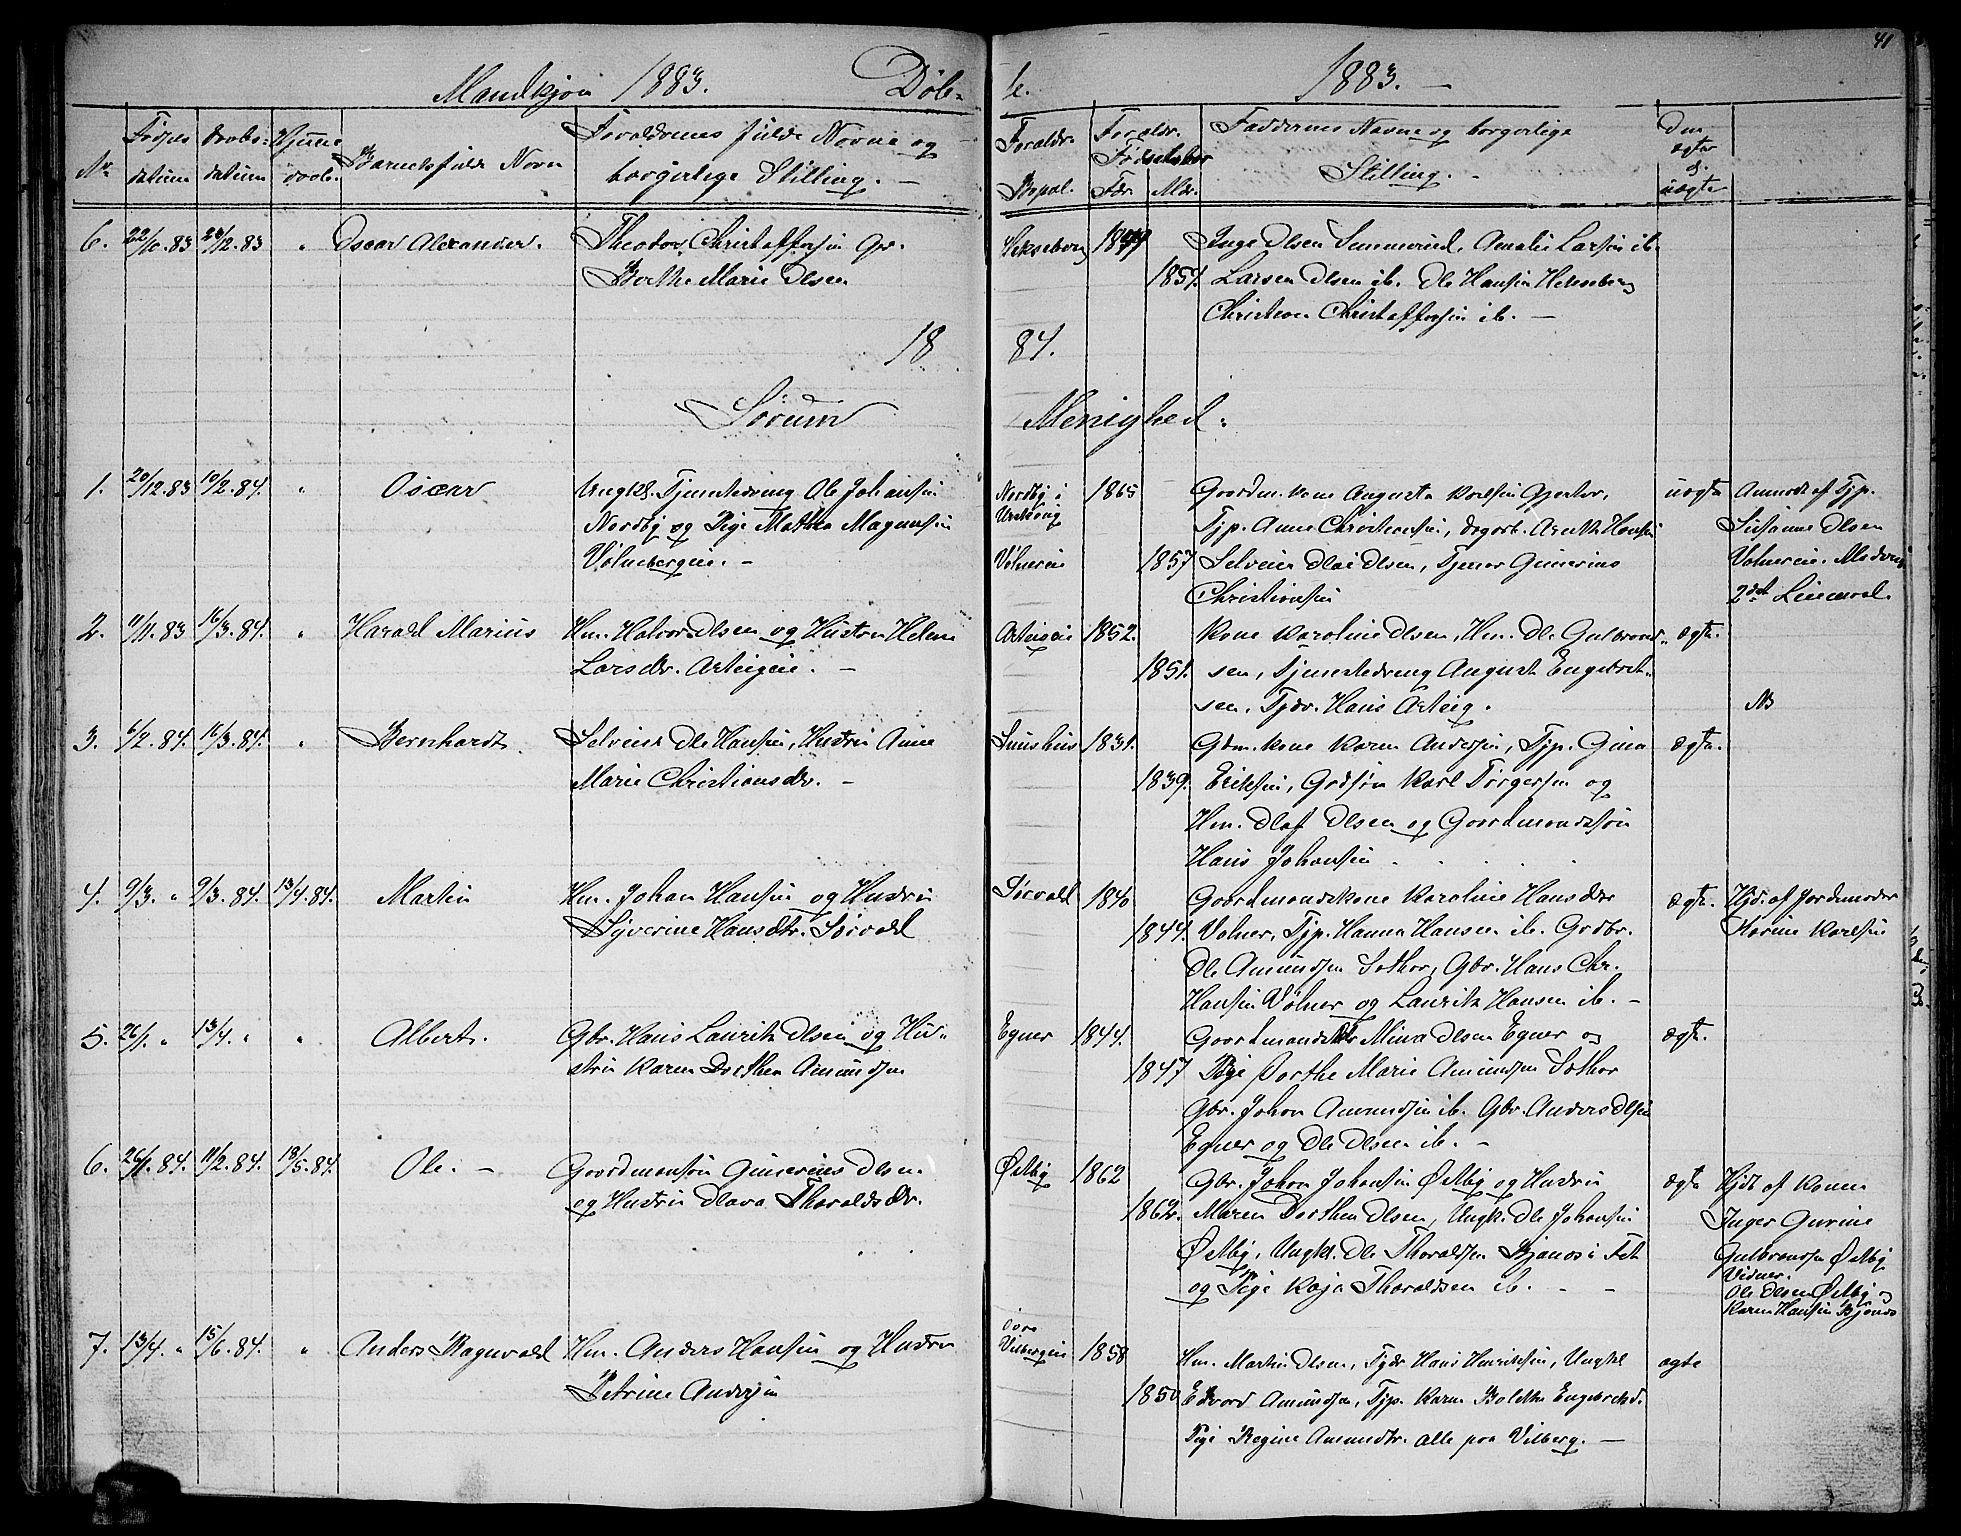 41
Mandkjøn 1883. Døb-
te. 1883. —
No
Fødsels
datum
Daabs-
datum
Hjemme
daab.
Barnets fulde Navn
Forældrenes fulde Navne og
borgerlige Stilling. —
Forældr.
Bopæl.
Forældr.
Fødselsaar
Fdr. Mdr.
Faddernes Navne og borgerlige
Stilling. -
Om
ægte
el.
uægte
6. 22/10.83 26/12.83 " Oscar Alexander. Theodor Christoffersen Gr.
Berthe Marie Olsen
Hekseberg 1849 Inge Olsen Ammerud, Amalie Larsen ib.
1857. Larsen Olsen ib. Ole Hansen Hekseberg
Christian Christoffersen ib. —
18 84.
Sørum Menighed.
1. 20/12.83 10/2.84. " Oscar Ungkl. Tjenestedreng Ole Johansen
Nordby og Pige Mathea Magnussen
Vølnerbergeie. —
Nordby i
Urskoug 1865
Vølnereie 1857
Gaardm. kone Augusta Karlsen Gjerker,
Tjp. Anne Christiansen, dagarb. Arnth Hansen
Selveier Olai Olsen, Tjener Gunerius
Christiansen
uægte Anmeldt af Tjp.
Susanne Olsen
Vølnereie. Moderens
2det Leiermaal.
2. 11/11.83 16/3.84. " Harald Marius Hm. Halvor Olsen og Hustru Helene
Larsdtr. Asteigeie. —
Asteigeie 1852. Kone Karoline Olsen, Hm. Ol. Gulbrand-
1851. sen, Tjenestedreng August Engebret-
sen, Tjdr. Hans Asteig.
ægte.
NB
3. 6/2.84. 16/3.84. " Bernhardt. Selveier Ole Hansen, Hustru Anne
Marie Christiansdtr. —
1831. Gbm. kone Karen Andersen, Tjp. Gina
1839. Eriksen, Grdsøn Karl Torgersen og
Hm. Olaf Olsen og Gaardmandssøn
Hans Johansen
ægte.
4. 9/3. " 9/3.84. 13/4.84. Martin Hm. Johan Hansen og Hustru
Syverine Hansdtr. Sørvald
Sørvald 1840 Gaardmandskone Karoline Hansdtr
1844. Vølner, Tjp. Hanna Hansen ib. Grdbr.
Ole Amundsen Sothor, Gbr. Hans Chr.
Hansen Vølner og Lauritz Hansen ib. —
ægte. Hjd. af Jordemoder
Karlsen
5. 26/1. " 13/4. " " Albert. Gbr. Hans Lauritz Olsen og Hu-
stru Karen Dorthea Amundsen
Egner 1844. Gaardmandsdtr Mina Olsen Egner og
1847 Pige Dorthe Marie Amundsen Sothor
Gbr. Johan Amundsen ib. Gbr. Anders Olsen
Egner og Ole Olsen ib. —
ægte.
6. 26/1.84. 11/2.84. 18/5.84. Ole. — Gaardmansøn Gunerius Olsen
og Hustru Olava Thoraldsdtr.
Østby 1862 Gbr. Johan Johansen Østby og Hustru
1862. Maren Dorthea Olsen, Ungk. Ole Johansen
Østby, Ungkl. Ole Thoraldsen Bjanes i Fet
og Pige Kaja Thoraldsen ib. —
ægte Hjdt af Konen
Inger Gurine
Gulbrandsen Østby
Vidner.
Ole Olsen Østby og
Karen Hansen Bjanes
7. 13/4. " 15/6.84. " Anders Ragnvald Hm. Anders Hansen og Hustru
Petrine Andersen
Øvre
Vilbergeie 1858 Hm. Martin Olsen, Tjdr Hans Henriksen, Ungkl
1850 Edvard Amundsen, Tjp. Karen Bolette Engebretsd.
Pige Regine Amundtr. alle paa Vilberg. —
ægte